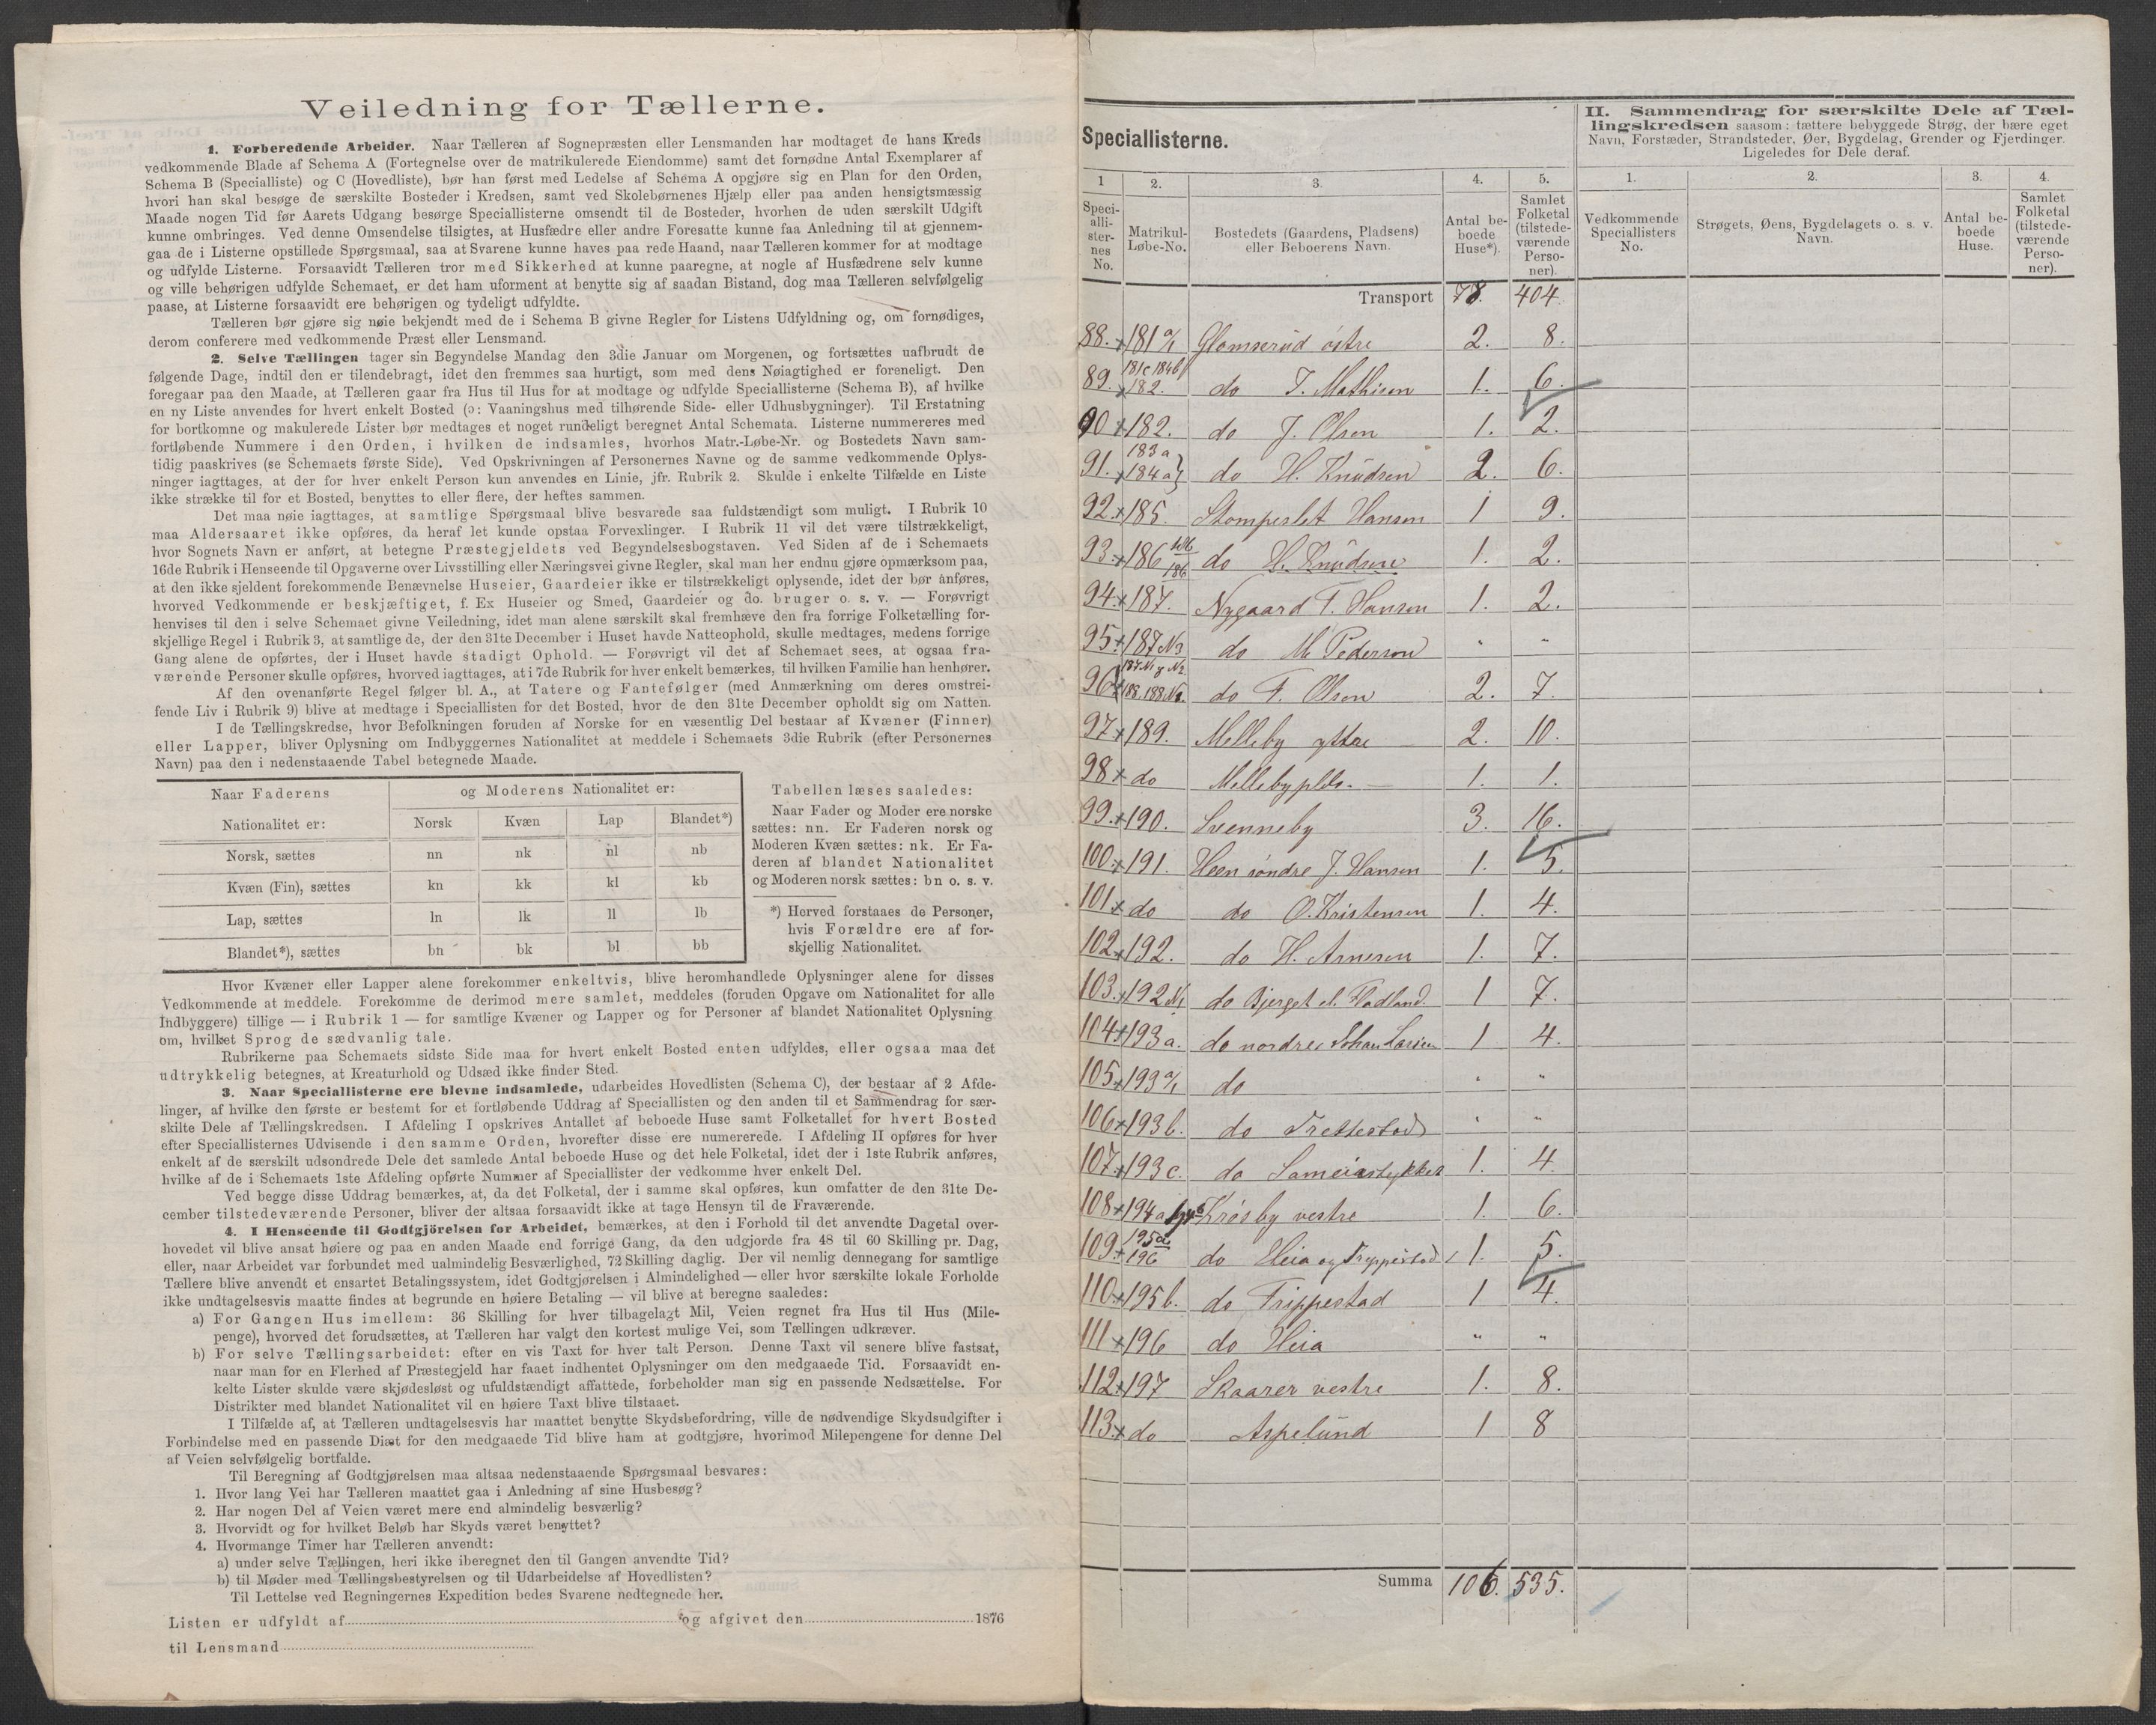 Veiledning for Tællerne.
1. Forberedende Arbeider. Naar Tælleren af Sognepræsten eller Lensmanden har modtaget de hans Kreds
vedkommende Blade af Schema A (Fortegnelse over de matrikulerede Eiendomme) samt det fornødne Antal Exemplarer af
Schema B (Specialliste) og C (Hovedliste), bør han først med Ledelse af Schema A opgjøre sig en Plan for den Orden,
hvori han skal besøge de særskilte Bosteder i Kredsen, samt ved Skolebørnenes Hjælp eller paa anden hensigtsmæssig
Maade nogen Tid før Aarets Udgang besørge Speciallisterne omsendt til de Bosteder, hvorhen de uden særskilt Udgift
kunne ombringes. Ved denne Omsendelse tilsigtes, at Husfædre eller andre Foresatte kunne faa Anledning til at gjennem-
gaa de i Listerne opstillede Spørgsmaal, saa at Svarene kunne haves paa rede Haand, naar Tælleren kommer for at modtage
og udfylde Listerne. Forsaavidt Tælleren tror med Sikkerhed at kunne paaregne, at nogle af Husfædrene selv kunne
og ville behørigen udfylde Schemaet, er det ham uforment at benytte sig af saadan Bistand, dog maa Tælleren selvfølgelig
paase, at Listerne forsaavidt ere behørigen og tydeligt udfyldte.
Tælleren bør gjøre sig nøie bekjendt med de i Schema B givne Regler for Listens Udfyldning og, om fornødiges,
derom conferere med vedkommende Præst eller Lensmand.
2. Selve Tællingen tager sin Begyndelse Mandag den 3die Januar om Morgenen, og fortsættes uafbrudt de
følgende Dage, indtil den er tilendebragt, idet den fremmes saa hurtigt, som med dens Nøiagtighed er foreneligt. Den
foregaar paa den Maade, at Tælleren gaar fra Hus til Hus for at modtage og udfylde Speciallisterne (Schema B), af hvilke
en ny Liste anvendes for hvert enkelt Bosted (ɔ: Vaaningshus med tilhørende Side- eller Udhusbygninger). Til Erstatning
for bortkomne og makulerede Lister bør medtages et noget rundeligt beregnet Antal Schemata. Listerne nummereres med
fortløbende Nummere i den Orden, i hvilken de indsamles, hvorhos Matr.-Løbe-Nr. og Bostedets Navn sam-
tidig paaskrives (se Schemaets første Side). Ved Opskrivningen af Personernes Navne og de samme vedkommende Oplys-
ninger iagttages, at der for hver enkelt Person kun anvendes en Linie, jfr. Rubrik 2. Skulde i enkelte Tilfælde en Liste
ikke strække til for et Bosted, benyttes to eller flere, der heftes sammen.
Det maa nøie iagttages, at samtlige Spørgsmaal blive besvarede saa fuldstændigt som muligt. I Rubrik 10
maa Aldersaaret ikke opføres, da heraf let kunde opstaa Forvexlinger. I Rubrik 11 vil det være tilstrækkeligt,
hvor Sognets Navn er anført, at betegne Præstegjeldets ved Begyndelsesbogstaven. Ved Siden af de i Schemaets
16de Rubrik i Henseende til Opgaverne over Livsstilling eller Næringsvei givne Regler, skal man her endnu gjøre opmærksom paa,
at den ikke sjeldent forekommende Benævnelse Huseier, Gaardeier ikke er tilstrækkeligt oplysende, idet der bør anføres,
hvorved Vedkommende er beskjæftiget, f. Ex Huseier og Smed, Gaardeier og do. bruger o. s. v. — Forøvrigt
henvises til den i selve Schemaet givne Veiledning, idet man alene særskilt skal fremhæve den fra forrige Folketælling for-
skjellige Regel i Rubrik 3, at samtlige de, der den 31te December i Huset havde Natteophold, skulle medtages, medens forrige
Gang alene de opførtes, der i Huset havde stadigt Ophold. — Forøvrigt vil det af Schemaet sees, at ogsaa fra-
værende Personer skulle opføres, hvorved iagttages, at i 7de Rubrik for hver enkelt bemærkes, til hvilken Familie han henhører.
Af den ovenanførte Regel følger bl. A., at Tatere og Fantefølger (med Anmærkning om deres omstrei-
fende Liv i Rubrik 9) blive at medtage i Speciallisten for det Bosted, hvor de den 31te December opholdt sig om Natten.
I de Tællingskredse, hvor Befolkningen foruden af Norske for en væsentlig Del bestaar af Kvæner (Finner)
eller Lapper, bliver Oplysning om Indbyggernes Nationalitet at meddele i Schemaets 3die Rubrik (efter Personernes
Navn) paa den i nedenstaaende Tabel betegnede Maade.
Naar Faderens og Moderens Nationalitet er:
Nationalitet er: Norsk Kvæn Lap Blandet*)
Norsk, sættes nn nk nl nb
Kvæn (Fin), sættes kn kk kl kb
Lap, sættes ln lk ll lb
Blandet*), sættes bn bk bl bb
Tabellen læses saaledes:
Naar Fader og Moder ere norske
sættes: nn. Er Faderen norsk og
Moderen Kvæn sættes: nk. Er Fa-
deren af blandet Nationalitet
og Moderen norsk sættes: bn o. s. v.
*) Herved forstaaes de Personer,
hvis Forældre ere af for-
skjellig Nationalitet.
Hvor Kvæner eller Lapper alene forekommer enkeltvis, blive heromhandlede Oplysninger alene for disses
Vedkommende at meddele. Forekomme de derimod mere samlet, meddeles (foruden Opgave om Nationalitet for alle
Indbyggere) tillige — i Rubrik 1 — for samtlige Kvæner og Lapper og for Personer af blandet Nationalitet Oplysning
om, hvilket Sprog de sædvanlig tale.
Rubrikerne paa Schemaets sidste Side maa for hvert enkelt Bosted enten udfyldes, eller ogsaa maa det
udtrykkelig betegnes, at Kreaturhold og Udsæd ikke finder Sted.
3. Naar Speciallisterne ere blevne indsamlede, udarbeides Hovedlisten (Schema C), der bestaar af 2 Afde-
linger, af hvilke den første er bestemt for et fortløbende Uddrag af Speciallisten og den anden til et Sammendrag for sær-
skilte Dele af Tællingskredsen. I Afdeling I opskrives Antallet af beboede Huse samt Folketallet for hvert Bosted
efter Speciallisternes Udvisende i den samme Orden, hvorefter disse ere numererede. I Afdeling II opføres for hver
enkelt af de særskilt udsondrede Dele det samlede Antal beboede Huse og det hele Folketal, idet der i 1ste Rubrik anføres,
hvilke af de i Schemaets 1ste Afdeling opførte Nummer af Speciallister der vedkomme hver enkelt Del.
Ved begge disse Uddrag bemærkes, at, da det Folketal, der i samme skal opføres, kun omfatter de den 31te De-
cember tilstedeværende Personer, bliver der altsaa forsaavidt ikke at tage Hensyn til de Fraværende.
4. I Henseende til Godtgjörelsen for Arbeidet, bemærkes, at den i Forhold til det anvendte Dagetal over-
hovedet vil blive ansat høiere og paa en anden Maade end forrige Gang, da den udgjorde fra 48 til 60 Skilling pr. Dag,
eller, naar Arbeidet var forbundet med ualmindelig Besværlighed, 72 Skilling daglig. Der vil nemlig dennegang for samtlige
Tællere blive anvendt et ensartet Betalingssystem, idet Godtgjørelsen i Almindelighed — eller hvor særskilte lokale Forholde
ikke undtagelsesvis maatte findes at begrunde en høiere Betaling — vil blive at beregne saaledes:
a) For Gangen Hus imellem: 36 Skilling for hver tilbagelagt Mil, Veien regnet fra Hus til Hus (Mile-
penge), hvorved det forudsættes, at Tælleren har valgt den kortest mulige Vei, som Tællingen udkræver.
b) For selve Tællingsarbeidet: efter en vis Taxt for hver talt Person. Denne Taxt vil senere blive fastsat,
naar man for en Flerhed af Præstegjeld har faaet indhentet Oplysninger om den medgaaede Tid. Forsaavidt en-
kelte Lister skulde være skjødesløst og ufuldstændigt affattede, forbeholder man sig en passende Nedsættelse. For
Distrikter med blandet Nationalitet vil en høiere Taxt blive tilstaaet.
I Tilfælde af, at Tælleren undtagelsesvis har maattet benytte Skydsbefordring, ville de nødvendige Skydsudgifter i
Forbindelse med en passende Diæt for den medgaaede Tid blive ham at godtgjøre, hvorimod Milepengene for denne Del
af Veien selvfølgelig bortfalde.
Til Beregning af Godtgjørelsen maa altsaa nedenstaaende Spørgsmaal besvares:
1. Hvor lang Vei har Tælleren maattet gaa i Anledning af sine Husbesøg?
2. Har nogen Del af Veien været mere end almindelig besværlig?
3. Hvorvidt og for hvilket Beløb har Skyds været benyttet?
4. Hvormange Timer har Tælleren anvendt:
a) under selve Tællingen, heri ikke iberegnet den til Gangen anvendte Tid?
b) til Møder med Tællingsbestyrelsen og til Udarbeidelse af Hovedlisten?
Til Lettelse ved Regningernes Expedition bedes Svarene nedtegnede her.
Listen er udfyldt af og afgivet den 1876
til Lensmand
Speciallisterne.
1 2. 3. 4. 5.
Speci-alli-ster-nes No. Matrikul-Løbe-No. Bostedets (Gaardens, Pladsens) eller Beboerens Navn. Antal be-boede Huse*). Samlet Folketal (tilstede-værende Perso-ner).
Transport 78. 404.
88. × 181 a/1 Glomserud östre 2. 8.
89. × 181c 184b 182. do J. Mathisen 1. 6.
90 × 182. do J. Olsen 1. 2.
91. × 183a 184a} do H. Knudsen 2. 6.
92. × 185. Stomperlet Hansen 1 9.
93 × 186 186 do H. Knudsen 1. 2.
94. × 187. Nygaard F. Hansen 1. 2.
95. × 187 N3 do M. Pederson " "
96 × 187 N1 g N2 188. 188 N2. do F. Olsen 2. 7.
97 × 189. Melleby yttre 2. 10.
98 × do Mellebyplds. 1. 1.
99. × 190. Svenneby 3. 16.
100. × 191. Heen söndre J. Hansen 1. 5.
101 × do do O. Kristensen 1. 4.
102 × 192. do H. Arnesen 1. 7.
103. × 192 N1 do Bjerget el. Fladland. 1 7.
104 × 193 a. do nordre Johan Larsen 1 4.
105 × 193 a/1 do " "
106 × 193 b. do Trettestad " "
107 × 193 c. do Sameiestykket 1. 4.
108 × 194 a Krosby vestre 1. 6.
109 × 195a 196 do Heia og Tryppestad 1. 5.
110 × 195 b. do Trippestad 1 4.
111 × 196 do Heia " "
112 × 197 Skaarer vestre 1. 8.
113. × do Aspelund 1 8
Summa 106. 535.
II. Sammendrag for særskilte Dele af Tæl-
lingskredsen saasom: tættere bebyggede Strøg, der bære eget
Navn, Forstæder, Strandsteder, Øer, Bygdelag, Grender og Fjerdinger.
Ligeledes for Dele deraf.
1. 2. 3. 4.
Vedkommende Speciallisters No. Strøgets, Øens, Bygdelagets o. s. v. Navn. Antal be-boede Huse. Samlet Folketal (tilstede-værende Perso-ner).